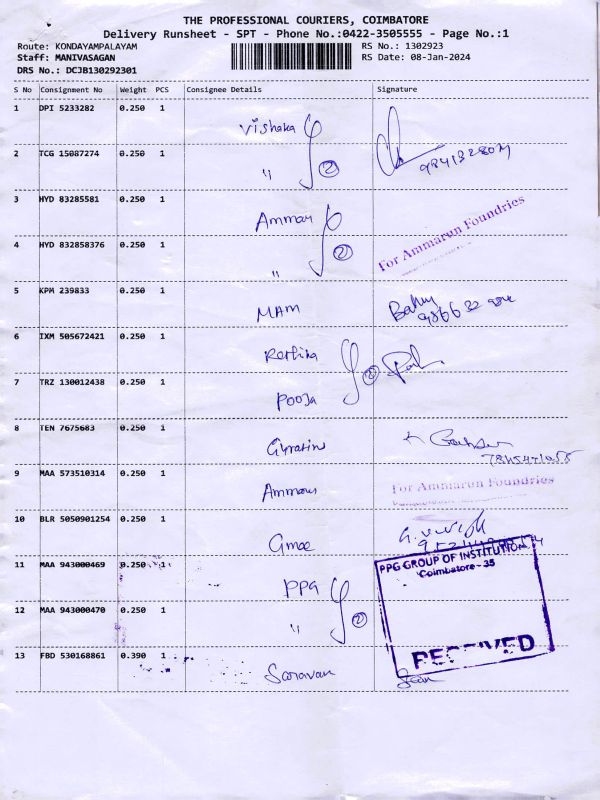 THE PROFESSIONAL COURIERS, COIMBATORE
Delivery Runsheet - SPT - Phone No.:0422-3505555 - Page No.:1
Route: KONDAYAMPALAYAM RS No.: 1302923
Staff: MANIVASAGAN RS Date: 08-Jan-2024
DRS No.: DCJB130292301
S No Consignment No Weight PCS Consignee Details Signature
1 DPI 5233282 0.250 1 Vishaka
2 TCG 15087274 0.250 1 " 2
3 HYD 83285581 0.250 1 Ammar
For Ammarun Foundries
4 HYD 832858376 0.250 1 " 2
5 KPM 239833 0.250 1 MAM
6 IXM 505672421 0.250 1 Rethika
7 TRZ 130012438 0.250 1 Pooja 2
8 TEN 7675683 0.250 1
9 MAA 573510314 0.250 1 For Ammarun Foundries
10 BLR 5050901254 0.250 1
11 MAA 943000469 0.250 1 PPG
PPG GROUP OF INSTITUTION
Coimbatore - 35
12 MAA 943000470 0.250 1 " 2
RECEIVED
13 FBD 530168861 0.390 1 Saravan